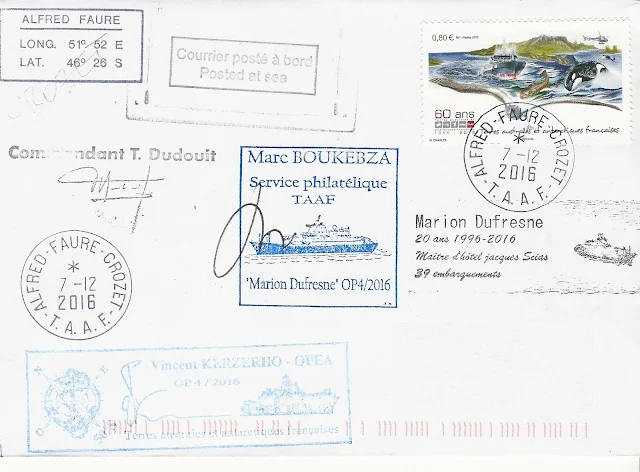 ALFRED FAURE
LONG. 51° 52 E
LAT. 46° 26 S
CROZET
Courrier posté à bord
Posted at sea
0,80 €
60 ans
Terres australes et antarctiques françaises
ALFRED-FAURE-CROZET
7-12
2016
-T.A.A.F.-
Commandant T. Dudouit
Marc BOUKEBZA
Service philatélique
TAAF
'Marion Dufresne' OP4/2016
Marion Dufresne
20 ans 1996-2016
Maître d'hôtel jacques Scias
39 embarquements
ALFRED-FAURE-CROZET
7-12
2016
-T.A.A.F.-
Vincent KERZERHO - OPEA
OP 4 / 2016
N
E
O
SUD
Terres australes et antarctiques françaises